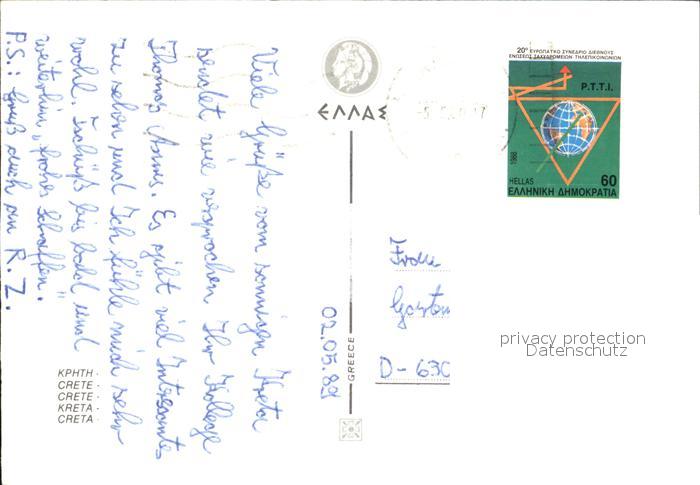 Viele Grüße vom sonnigen Kreta
sendet wie versprochen Ihr Kollege
Thomas. Es gibt viel Interessantes
zu sehen und ich fühle mich sehr
wohl. Tschüß bis bald und
weiterhin „frohes Schaffen“.
P.S.: Gruß auch an R. Z.
ΚΡΗΤΗ -
CRETE -
CRETE -
KRETA -
CRETA -
ΕΛΛΑΣ
02.05.89
GREECE
20ο ΕΥΡΩΠΑΪΚΟ ΣΥΝΕΔΡΙΟ ΔΙΕΘΝΟΥΣ
ΕΝΩΣΕΩΣ ΤΑΧΥΔΡΟΜΕΙΩΝ ΤΗΛΕΠΙΚΟΙΝΩΝΙΩΝ
P.T.T.I.
1988
HELLAS 60
ΕΛΛΗΝΙΚΗ ΔΗΜΟΚΡΑΤΙΑ
Frau
D - 630
privacy protection
Datenschutz